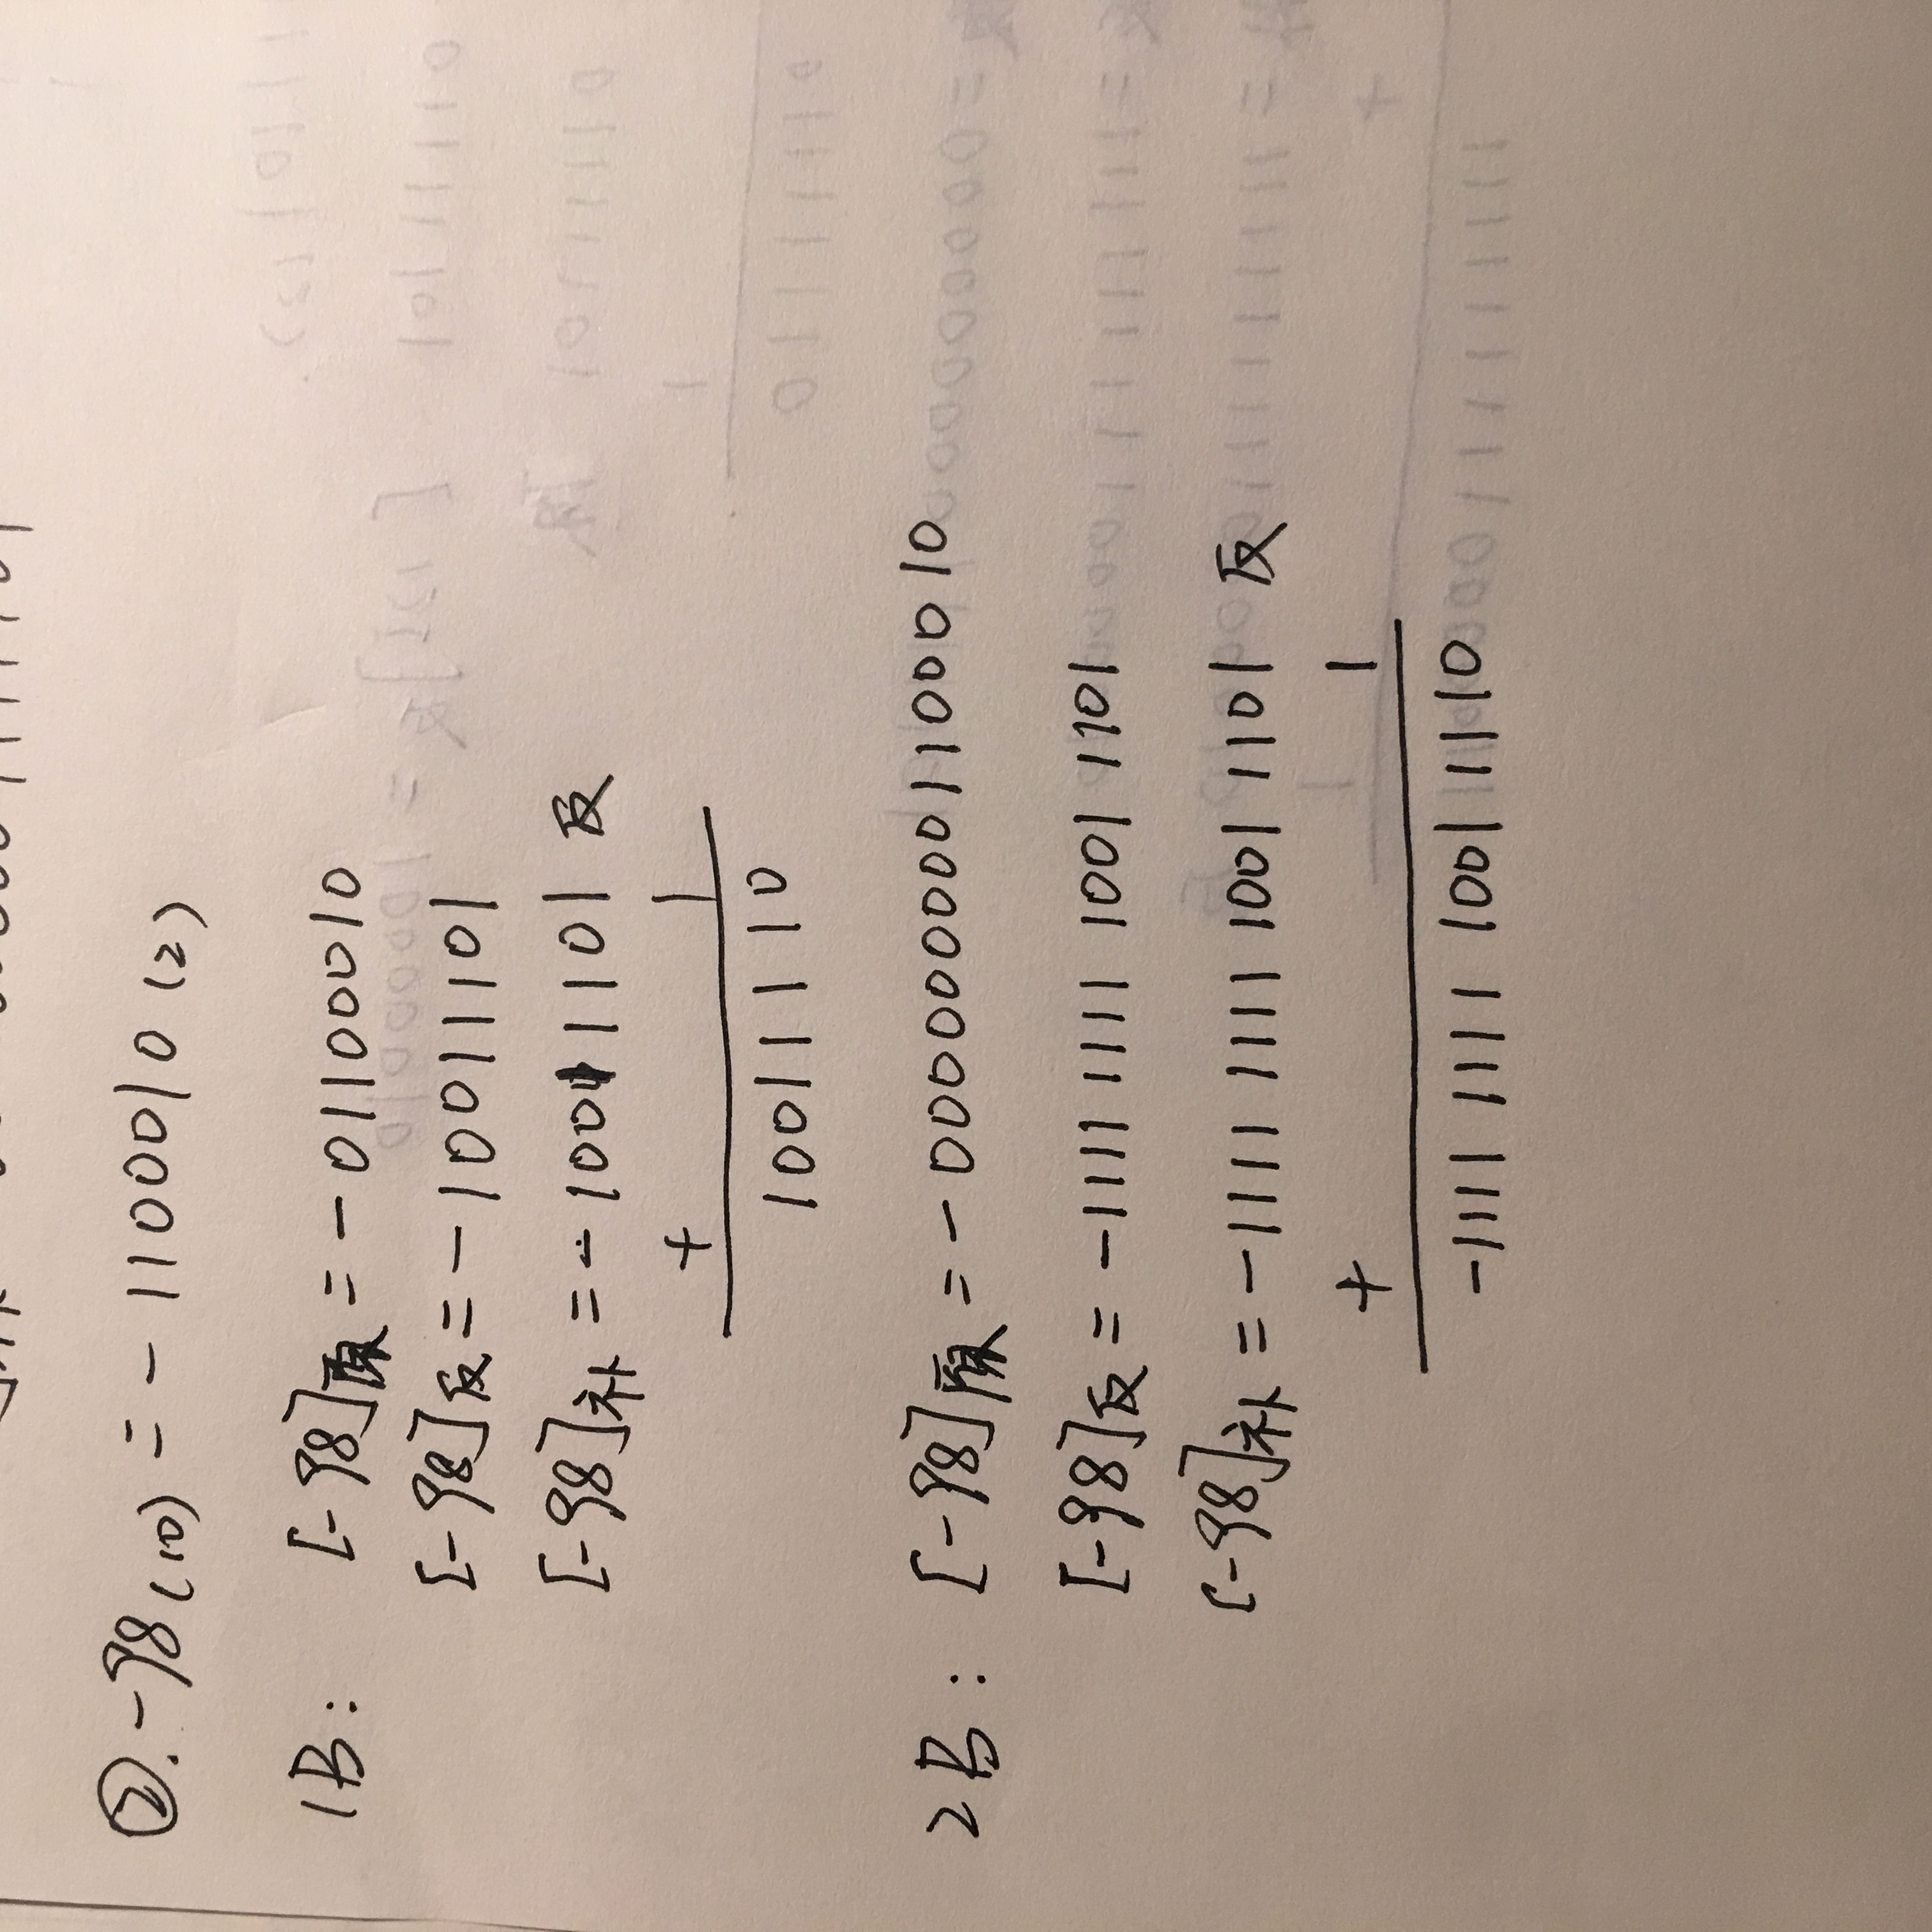 ②. -98(10) = - 1100010 (2)
1B: [-98]原 = - 01100010
[-98]反 = - 10011101
[-98]补 = - 10011101 反
+ 1
10011110
2B: [-98]原 = - 0000000001100010
[-98]反 = -1111 1111 1001 1101
[-98]补 = -1111 1111 1001 1101 反
+ 1
-1111 1111 1001 1110